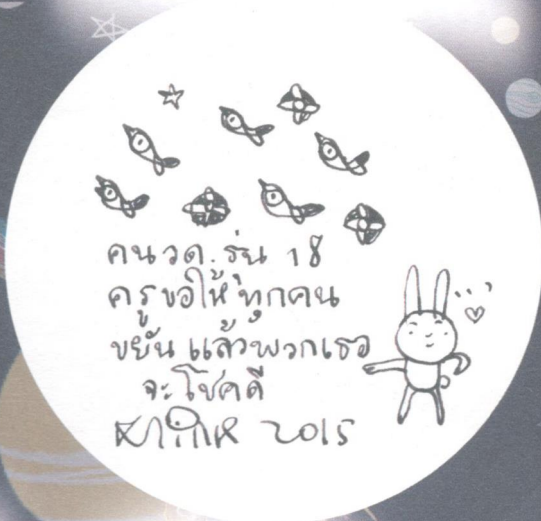 คนวด. รุ่น 18
ครูขอให้ทุกคน
ขยัน แล้วพวกเธอ
จะโชคดี
2015